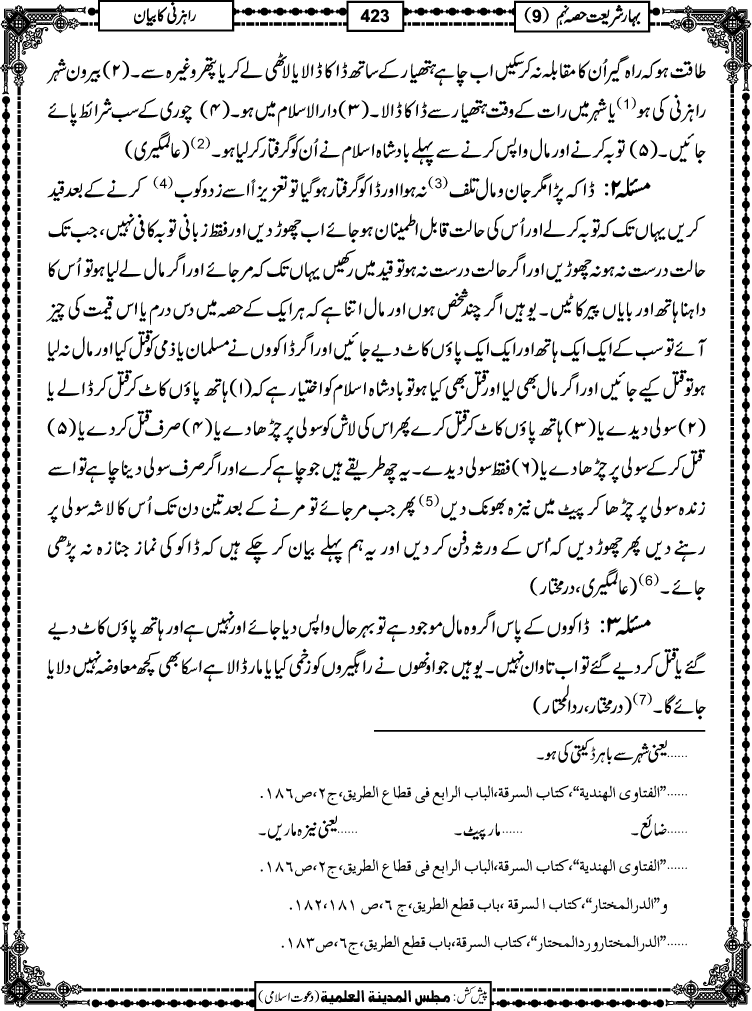 بہار شریعت حصہ نہم (9)
423
راہزنی کا بیان
طاقت ہو کہ راہ گیر اُن کا مقابلہ نہ کرسکیں اب چاہے ہتھیار کے ساتھ ڈاکا ڈالا یا لاٹھی لے کر یا پتھر وغیرہ سے۔ (۲) بیرون شہر
راہزنی کی ہو(1) یا شہر میں رات کے وقت ہتھیار سے ڈاکا ڈالا۔ (۳) دارالاسلام میں ہو۔ (۴) چوری کے سب شرائط پائے
جائیں۔ (۵) توبہ کرنے اور مال واپس کرنے سے پہلے بادشاہ اسلام نے اُن کو گرفتار کرلیا ہو۔(2) (عالمگیری)
مسئلہ ۲: ڈاکہ پڑا مگر جان و مال تلف(3) نہ ہوا اور ڈاکو گرفتار ہوگیا تو تعزیراً اسے زدوکوب(4) کرنے کے بعد قید
کریں یہاں تک کہ توبہ کرلے اور اُس کی حالت قابل اطمینان ہوجائے اب چھوڑ دیں اور فقط زبانی توبہ کافی نہیں، جب تک
حالت درست نہ ہو نہ چھوڑیں اور اگر حالت درست نہ ہو تو قید میں رکھیں یہاں تک کہ مر جائے اور اگر مال لے لیا ہو تو اُس کا
داہنا ہاتھ اور بایاں پیر کاٹیں۔ یوہیں اگر چند شخص ہوں اور مال اتنا ہے کہ ہر ایک کے حصہ میں دس درم یا اس قیمت کی چیز
آئے تو سب کے ایک ایک ہاتھ اور ایک ایک پاؤں کاٹ دیے جائیں اور اگر ڈاکووں نے مسلمان یا ذمی کو قتل کیا اور مال نہ لیا
ہو تو قتل کیے جائیں اور اگر مال بھی لیا اور قتل بھی کیا ہو تو بادشاہ اسلام کو اختیار ہے کہ (۱) ہاتھ پاؤں کاٹ کر قتل کر ڈالے یا
(۲) سولی دیدے یا (۳) ہاتھ پاؤں کاٹ کر قتل کرے پھر اس کی لاش کو سولی پر چڑھا دے یا (۴) صرف قتل کردے یا (۵)
قتل کرکے سولی پر چڑھا دے یا (۶) فقط سولی دیدے۔ یہ چھ طریقے ہیں جو چاہے کرے اور اگر صرف سولی دینا چاہے تو اسے
زندہ سولی پر چڑھا کر پیٹ میں نیزہ بھونک دیں(5) پھر جب مرجائے تو مرنے کے بعد تین دن تک اُس کا لاشہ سولی پر
رہنے دیں پھر چھوڑ دیں کہ اُس کے ورثہ دفن کردیں اور یہ ہم پہلے بیان کرچکے ہیں کہ ڈاکو کی نماز جنازہ نہ پڑھی
جائے۔(6) (عالمگیری، درمختار)
مسئلہ ۳: ڈاکووں کے پاس اگر وہ مال موجود ہے تو بہر حال واپس دیا جائے اور نہیں ہے اور ہاتھ پاؤں کاٹ دیے
گئے یا قتل کردیے گئے تو اب تاوان نہیں۔ یوہیں جو اونھوں نے راہگیروں کو زخمی کیا یا مار ڈالا ہے اسکا بھی کچھ معاوضہ نہیں دلایا
جائے گا۔(7) (درمختار، ردالمحتار)
......یعنی شہر سے باہر ڈکیتی کی ہو۔
......”الفتاوى الهندية“، كتاب السرقة، الباب الرابع فى قطاع الطريق، ج۲، ص۱۸۶.
......ضائع۔ ......مارپیٹ۔ ......یعنی نیزہ ماریں۔
......”الفتاوى الهندية“، كتاب السرقة، الباب الرابع فى قطاع الطريق، ج۲، ص۱۸۶.
و”الدرالمختار“، كتاب السرقة، باب قطع الطريق، ج ۶، ص ۱۸۱، ۱۸۲.
......”الدرالمختار وردالمحتار“، كتاب السرقة، باب قطع الطريق، ج۶، ص۱۸۳.
پیش کش: مجلس المدينة العلمية (دعوت اسلامی)